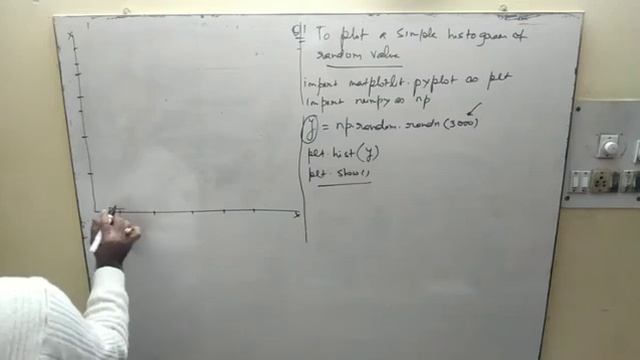 To plot a simple histogram of
random value
import matplotlib.pyplot as plt
import numpy as np
y = np.random.randn(3000)
plt.hist(y)
plt.show()